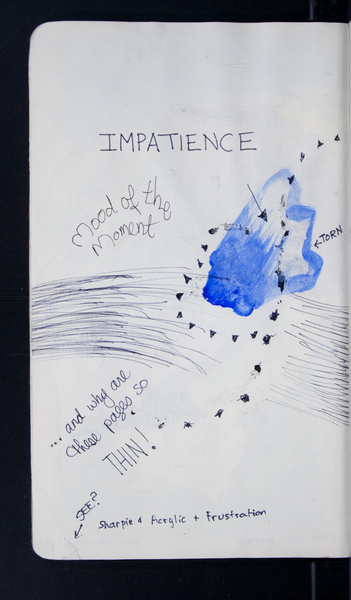 IMPATIENCE
Mood of the
Moment
↖TORN
... and why are
these pages so
THIN!
SEE?
Sharpie + Acrylic + Frustration